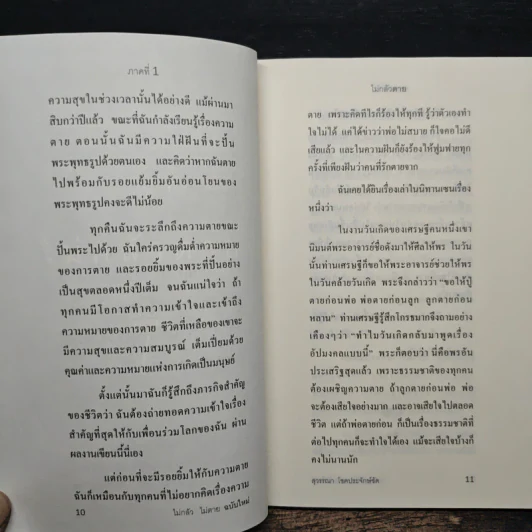 ภาคที่ 1
ความสุขในช่วงเวลานั้นได้อย่างดี แม้ผ่านมา
สิบกว่าปีแล้ว ขณะที่ฉันกำลังเรียนรู้เรื่องความ
ตาย ตอนนั้นฉันมีความใฝ่ฝันที่จะปั้น
พระพุทธรูปด้วยตนเอง และคิดว่าหากฉันตาย
ไปพร้อมกับรอยแย้มยิ้มอันอ่อนโยนของ
พระพุทธรูปคงจะดีไม่น้อย
ทุกคืนฉันจะระลึกถึงความตายขณะ
ปั้นพระไปด้วย ฉันใคร่ครวญดื่มด่ำความหมาย
ของการตาย และรอยยิ้มของพระที่ปั้นอย่าง
เป็นสุขตลอดหนึ่งปีเต็ม จนฉันแน่ใจว่า ถ้า
ทุกคนมีโอกาสทำความเข้าใจและเข้าถึง
ความหมายของการตาย ชีวิตที่เหลือของเขาจะ
มีความสุขและความสมบูรณ์ เต็มเปี่ยมด้วย
คุณค่าและความหมายแห่งการเกิดเป็นมนุษย์
ตั้งแต่นั้นมาฉันก็รู้สึกถึงภารกิจสำคัญ
ของชีวิตว่า ฉันต้องถ่ายทอดความเข้าใจเรื่อง
สำคัญที่สุดให้กับเพื่อนร่วมโลกของฉัน ผ่าน
ผลงานเขียนนี้นี่เอง
แต่ก่อนที่จะมีรอยยิ้มให้กับความตาย
ฉันก็เหมือนกับทุกคนที่ไม่อยากคิดเรื่องความ
10 ไม่กลัว ไม่ตาย ฉบับใหม่
ไม่กลัวตาย
ตาย เพราะคิดทีไรก็ร้องไห้ทุกที รู้ว่าตัวเองทำ
ใจไม่ได้ แค่ได้ข่าวว่าพ่อไม่สบาย ก็ใจคอไม่ดี
เสียแล้ว และในความฝันก็ยังร้องไห้ฟูมฟายทุก
ครั้งที่เพียงฝันว่าคนที่รักตายจาก
ฉันเคยได้ยินเรื่องเล่าในนิทานเซนเรื่อง
หนึ่งว่า
ในงานวันเกิดของเศรษฐีคนหนึ่งเขา
นิมนต์พระอาจารย์ชื่อดังมาให้ศีลให้พร ในวัน
นั้นท่านเศรษฐีก็ขอให้พระอาจารย์ช่วยให้พร
ในวันคล้ายวันเกิด พระจึงกล่าวว่า "ขอให้ปู่
ตายก่อนพ่อ พ่อตายก่อนลูก ลูกตายก่อน
หลาน" ท่านเศรษฐีรู้สึกโกรธมากจึงถามอย่าง
เคืองๆว่า "ทำไมวันเกิดกลับมาพูดเรื่อง
อัปมงคลแบบนี้" พระก็ตอบว่า นี่คือพรอัน
ประเสริฐสุดแล้ว เพราะธรรมชาติของทุกคน
ต้องเผชิญความตาย ถ้าลูกตายก่อนพ่อ พ่อ
จะต้องเสียใจอย่างมาก และอาจเสียใจไปตลอด
ชีวิต แต่ถ้าพ่อตายก่อน ก็เป็นเรื่องธรรมชาติที่
ต่อไปทุกคนก็จะทำใจได้เอง แม้จะเสียใจบ้างก็
คงไม่นานนัก
สุวรรณา โชคประจักษ์ชัด 11